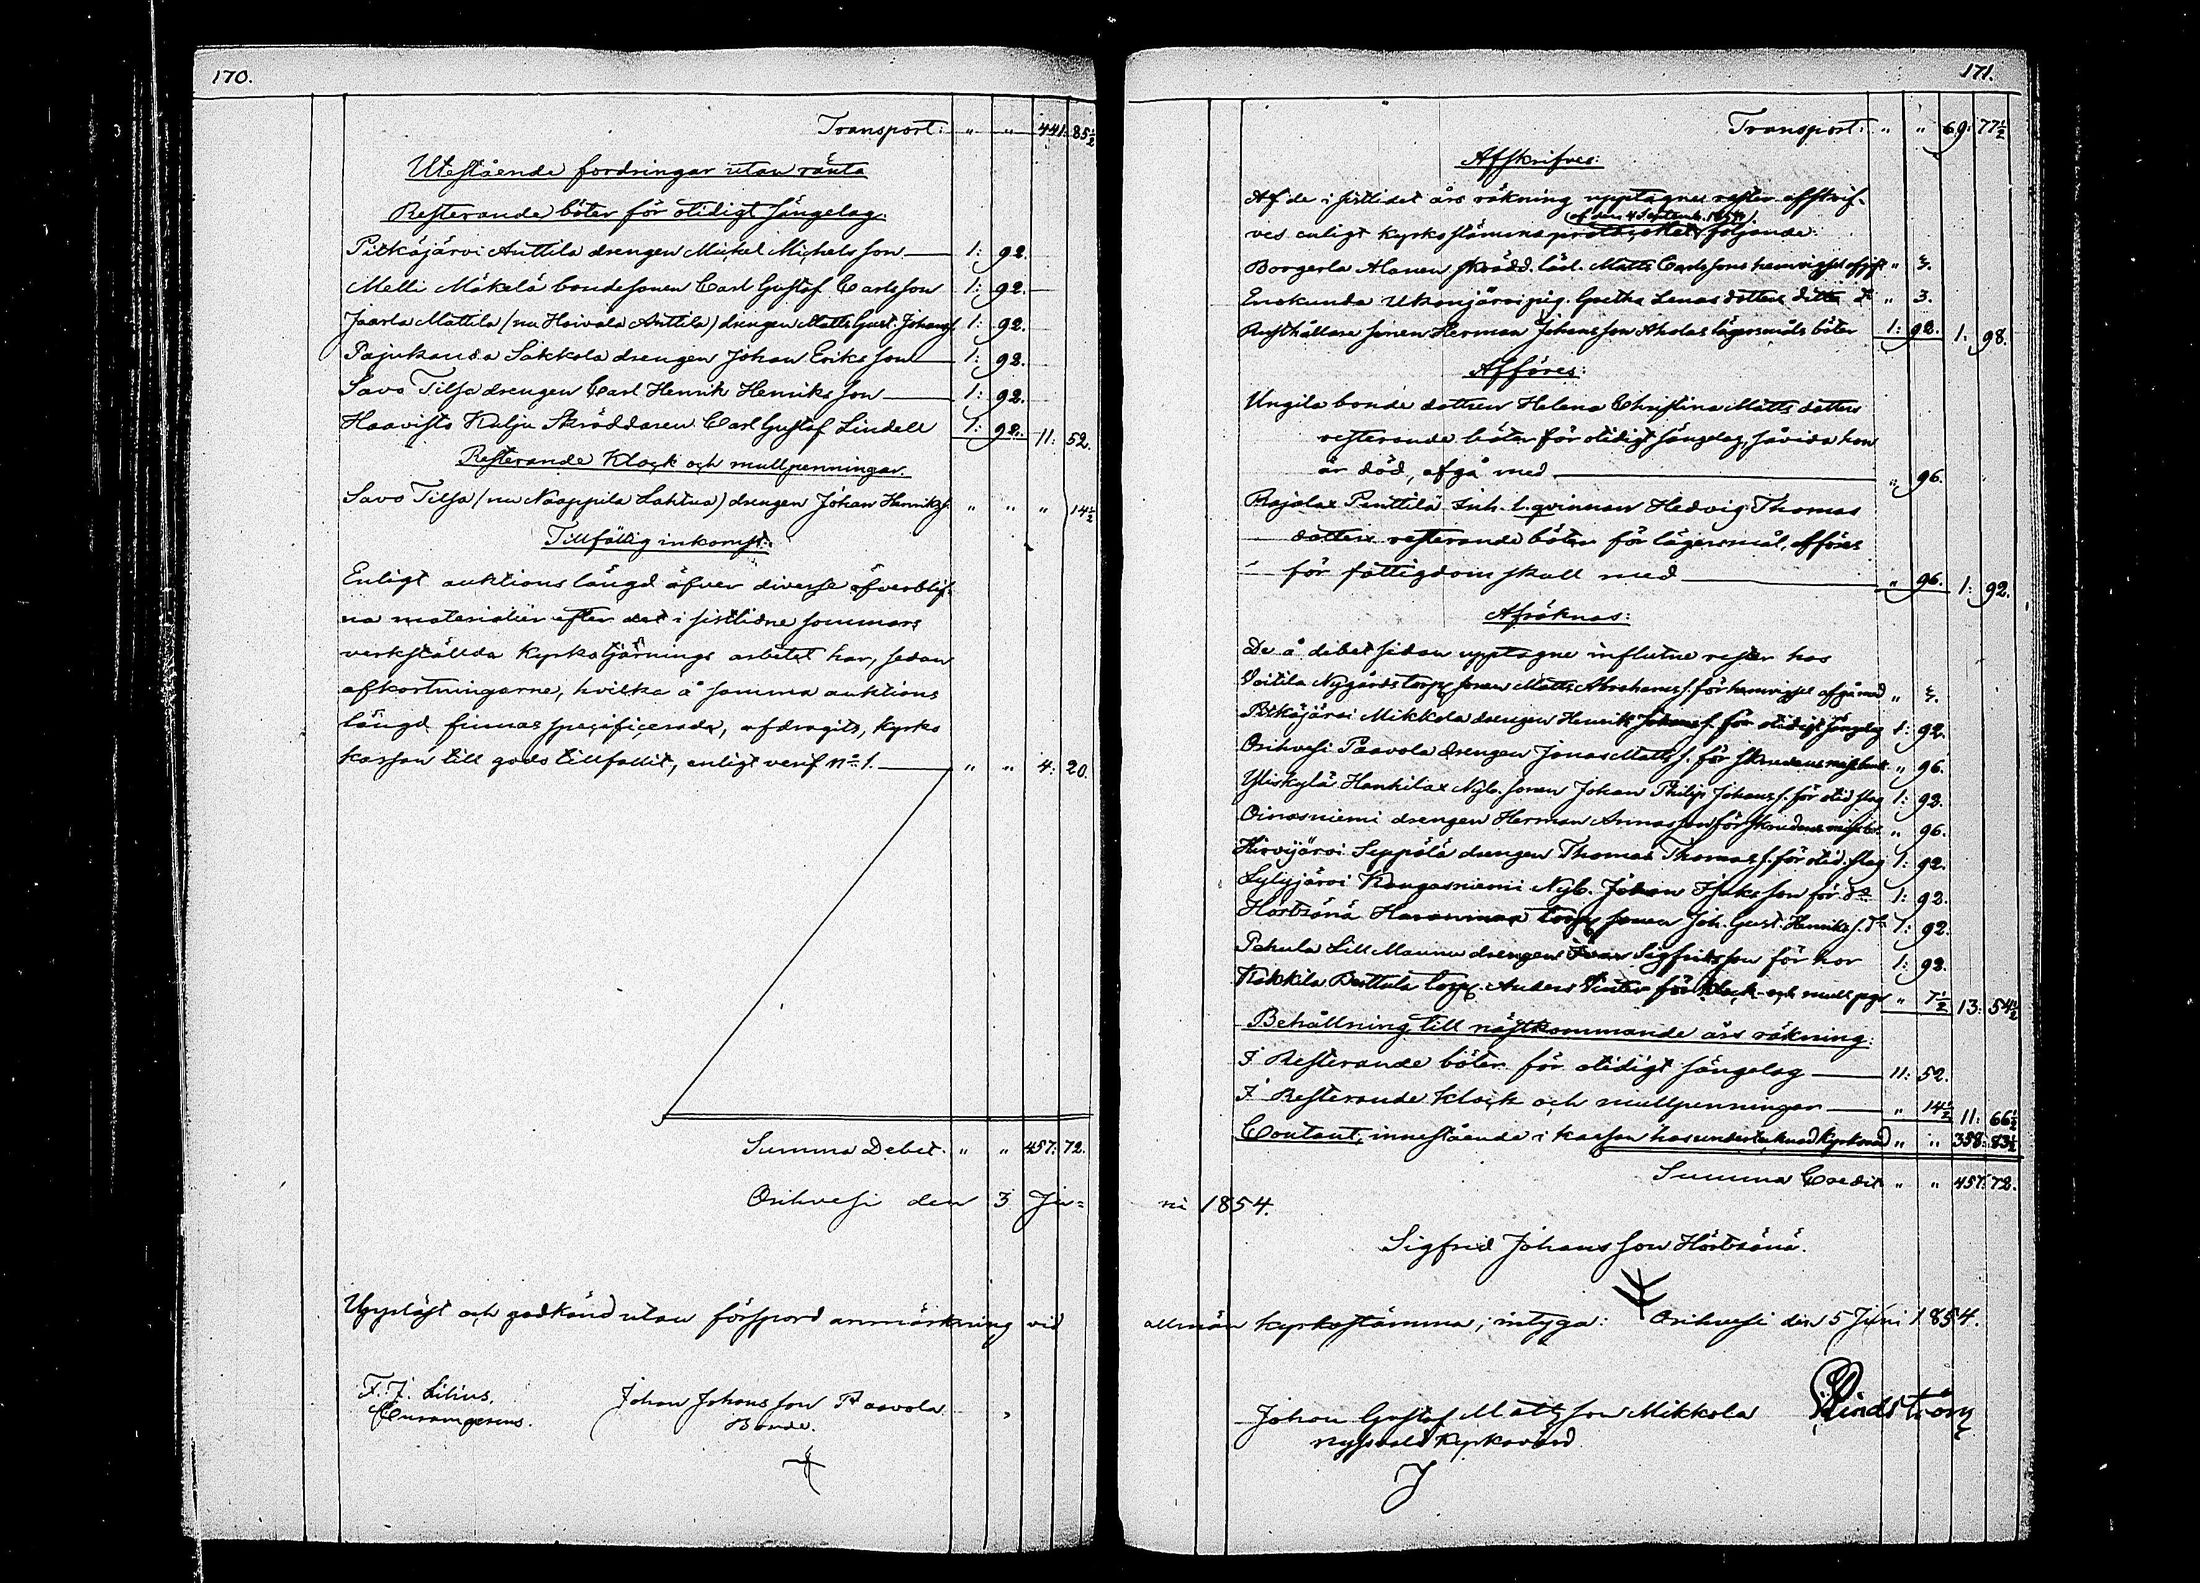 170.
Transport: " " 441: 85½
Utestående fordringar utan ränta
Resterande böter för otidigt sängelag.
Pitkäjärvi Anttila drengen Mickel Michelsson 1: 92.
Melli Mäkelä bondesonen Carl Gustaf Carlsson 1: 92.
Jaarla Mattila (nu Hoivala Anttila) drengen Matts Gust. Johanss. 1: 92.
Pajukanda Säkkola drengen Johan Eriksson 1: 92.
Savo Tilsa drengen Carl Henrik Henriksson 1: 92.
Haavisto Kulju Skräddaren Carl Gustaf Lindell 1: 92. 11: 52.
Resterande Klock och mullpenningar.
Savo Tilsa (nu Naappila Lahtua) drengen Johan Henrikss. " " " 14½
Tillfällig inkomst:
Enligt auktions längd öfver diverse öfverblif-
na materialier efter det i sistlidne sommars
verkställda Kyrkotjärnings arbetet har, sedan
afkortningarne, hvilka å samma auktions
längd finnas specificerade, afdragits, Kyrko
kassan till godo tillfallit, enligt verif n:o 1. " " 4: 20.
Summa Debet. " " 457: 72.
Orihvesi den 3 Ju-
Uppläst och godkänd utan förspord anmärkning vid
F. J. Lilius. Johan Johansson Paavola
Bonde.
171.
Transport: " " 69: 77½
Afskrifves:
Af de i sistlidet års räkning upptagne rester afskrif-
(af den 4 Septemb. 1853)
ves enligt kyrkostämmoprotocollet följande:
Borgerla Alanen skrädd. lärl. Matts Carlssons hemvigsel afgift " 3.
Enokunda Ukonjärvi pig. Gretha Lenasdotters ditto d:o " 3.
Rusthållare sonen Herman Johansson Aholas lägersmåls böter 1: 92. 1: 98.
Afföres:
Ungila bonde dottren Helena Christina Matts dotters
resterande böter för otidigt sängelag, såvida hon
är död, afgå med " 96.
Rajalax Penttilä Inh. l. qvinnan Hedvig Thomas
dotters resterande böter för lägersmål, afföres
för fattigdom skull med " 96. 1: 92.
Afräknas:
De å debet sidan upptagne influtne rester hos
Voitila Nygårds torp. sonen Matts Abrahamss. för hemvigsel afgå med " 3.
Pitkäjärvi Mikkola drengen Henrik Johanss. för otidigt sängelag 1: 92.
Orihvesi Paavola drengen Jonas Matts s. för skrudens missbruk " 96.
Yliskylä Hankilax Nyb. sonen Johan Philip Johanss. för otid. slag 1: 92.
Oinasniemi drengen Herman Annasson för skrudens missbr. " 96.
Hirvijärvi Seppälä drengen Thomas Thomass. för otid. slag 1: 92.
Lylyjärvi Kangasniemi Nyb. Johan Isaksson för d:o 1: 92.
Hörtsänä torp. sonen Joh. Gust. Henriks s. d:o 1: 92.
Pehula Lill Mauno drengen Ivar Sigfridsson för hor 1: 92.
Kokkila Perttula torp. Anders Winter för klock och mull pgr " 7½ 13: 54½
Behållning till nästkommande års räkning:
I Resterande böter för otidigt sängelag 11: 52.
I Resterande klock och mullpenningar " 14½ 11: 66½
Contant, innestående i kassan hos undertecknad Kyrkovärd " " 358: 83½
Summa Credit " " 457: 72.
ni 1854.
Sigfrid Johansson Hörtsänä.
allmän kyrkostämma, intyga: Orihvesi den 5 Juni 1854.
Johan Gustaf Mattsson Mikkola Lindström
nyssvald Kyrkovärd